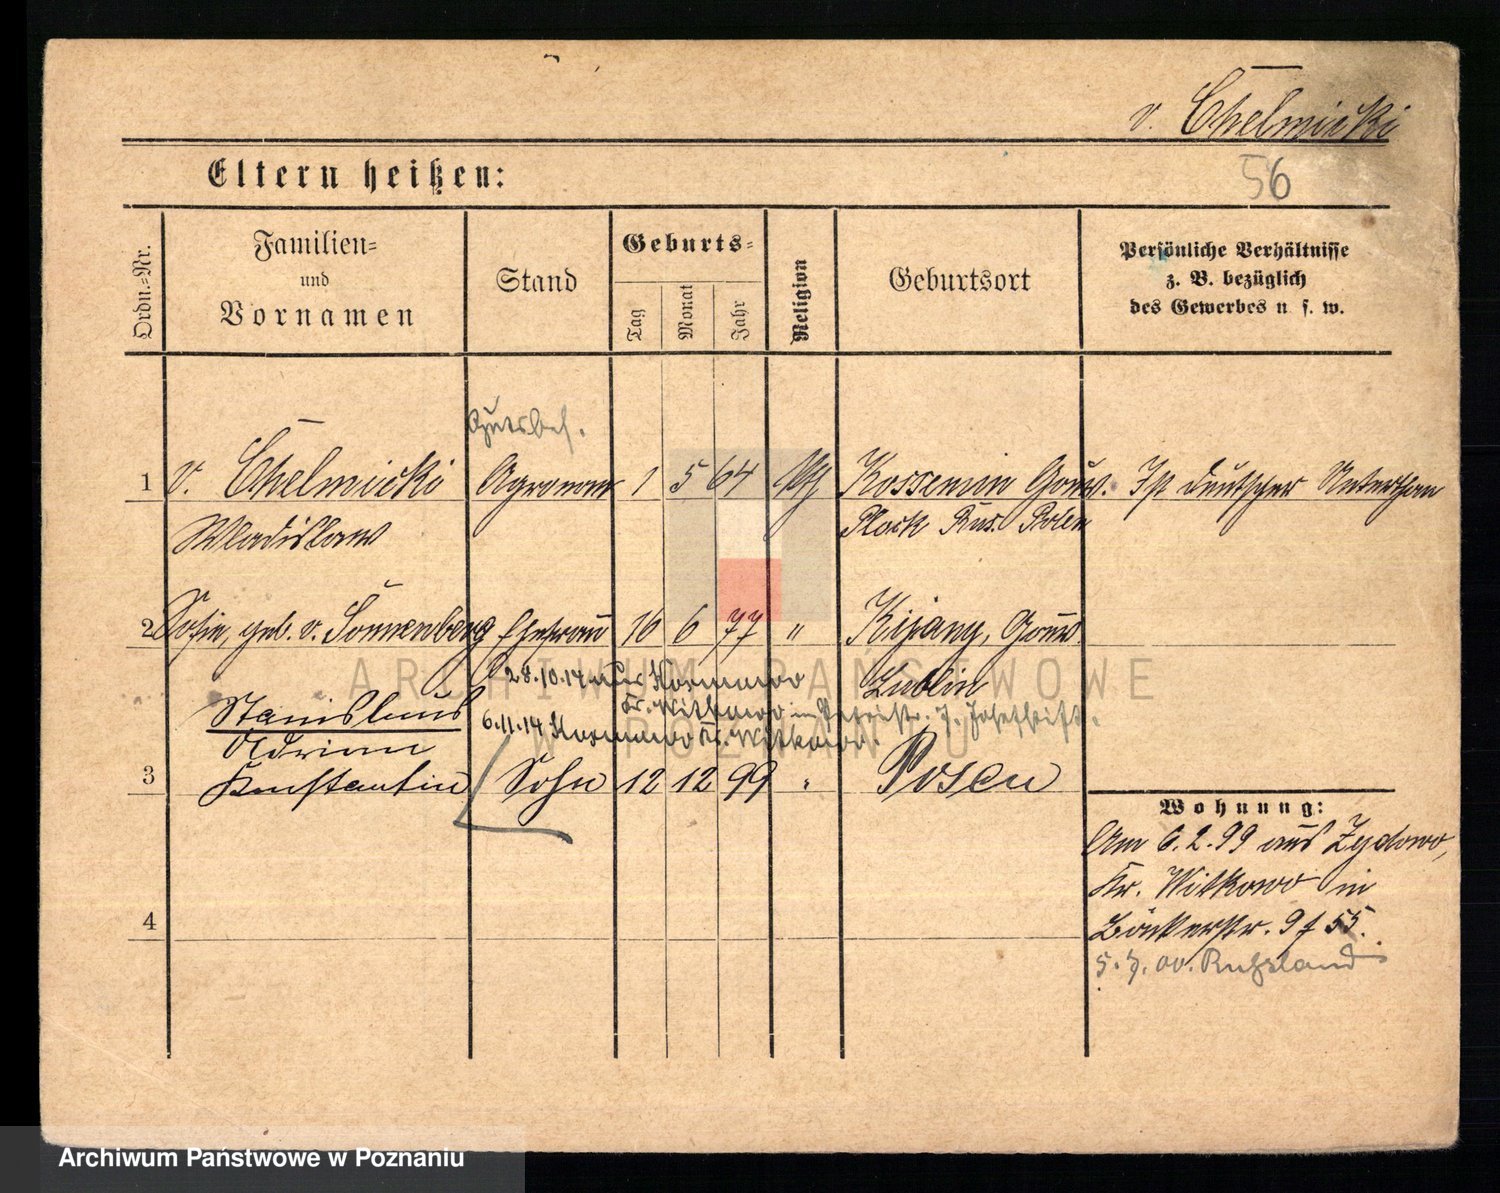 v. Chelmicki
Eltern heißen:
56
Ordn.-Nr.
Familien-
und
Vornamen
Stand
Geburts-
Tag
Monat
Jahr
Religion
Geburtsort
Persönliche Verhältnisse
z. B. bezüglich
des Gewerbes u. s. w.
Gutsbes.
1 v. Chelmicki Agronom 1 5 64 Kossemin Gouv. Ist deutscher Unterthan
Wladislaw Plock Rus. Polen
2 Sofie, geb. v. Sonnenberg Ehefrau 16 6 77 " Kijany, Gouv.
Lublin
28.10.14 aus
Stanislaus Kr. Witkowo in
6.11.14 Kr. Witkowo.
Adrian
3 Konstantin Sohn 12 12 99 " Posen
Wohnung:
Am 6.2.99 aus Zydowo,
Kr. Witkowo in
Bäckerstr. 9 f 55.
4
5.7.00. Rußland
ARCHIWUM PAŃSTWOWE
W POZNANIU
Archiwum Państwowe w Poznaniu